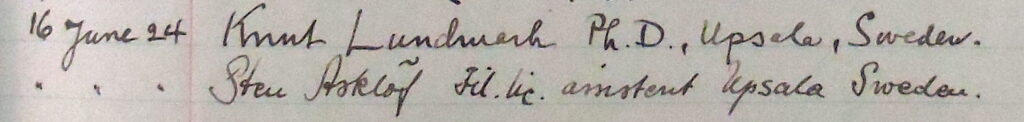 16 June 24 Knut Lundmark Ph.D., Upsala, Sweden.
" " " Sten Asklöf Fil. lic. assistent Upsala Sweden.